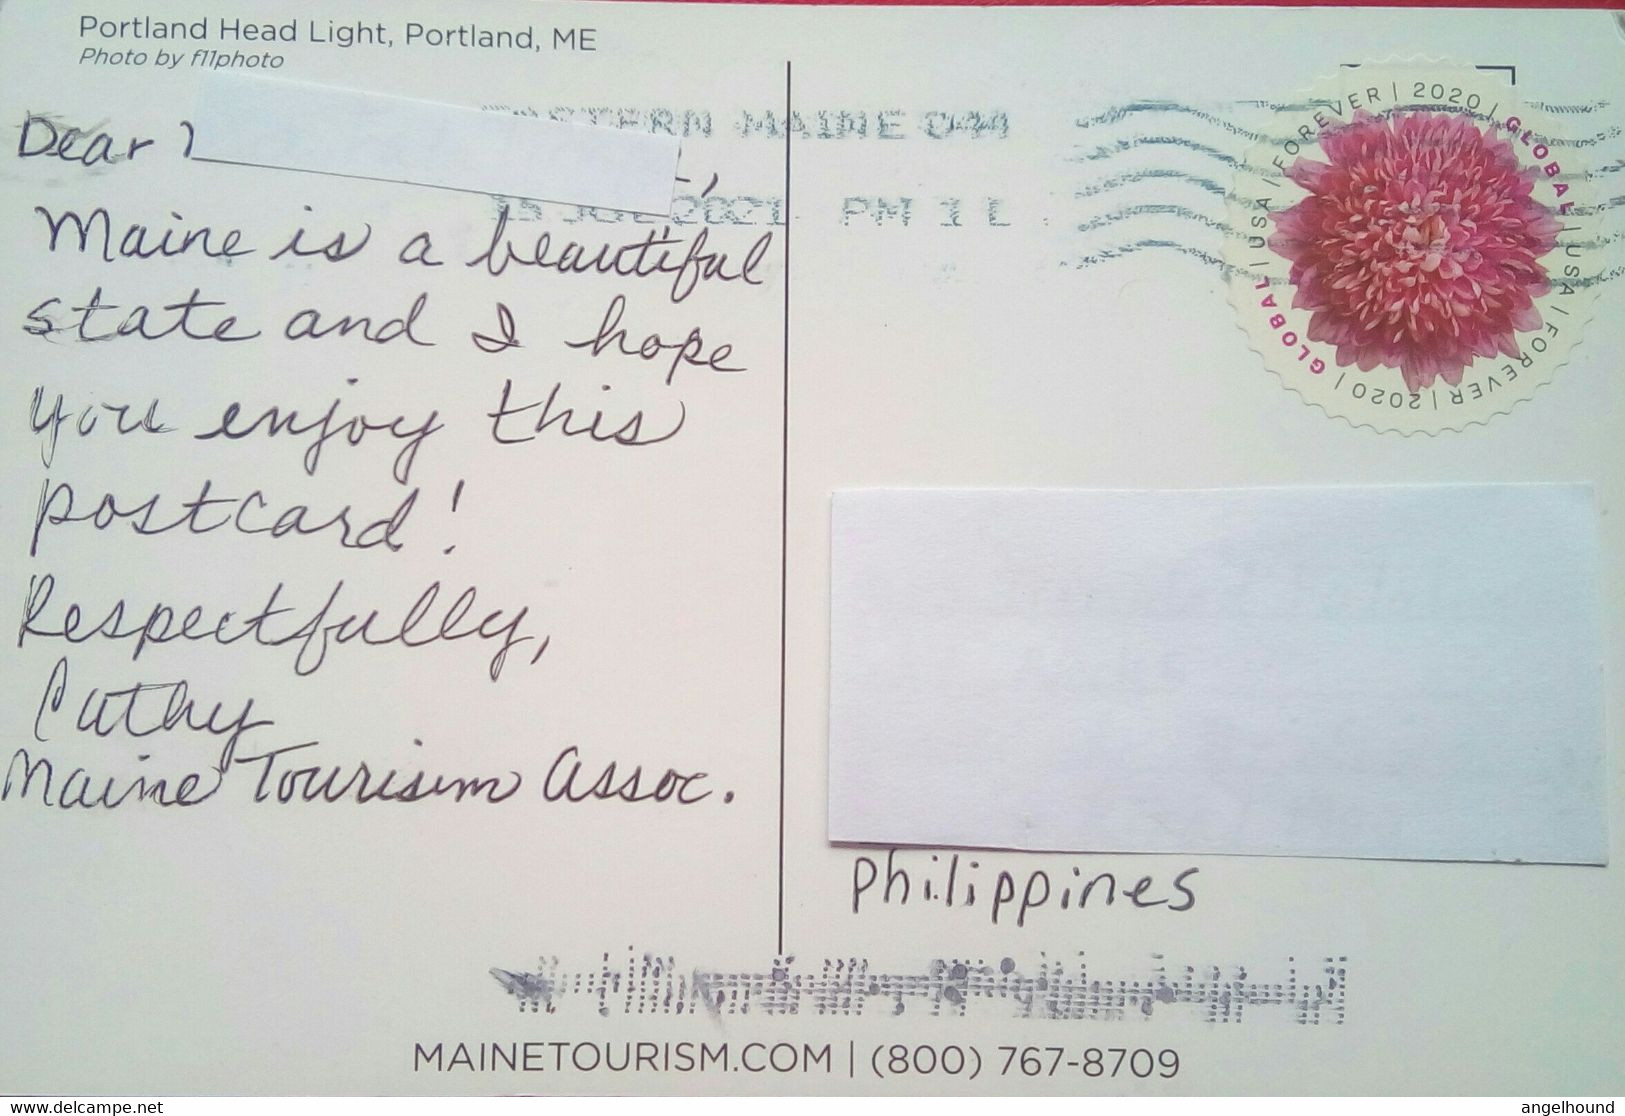 Portland Head Light, Portland, ME
Photo by f11photo
Dear
Maine is a beautiful
state and I hope
you enjoy this
postcard!
Respectfully,
Cathy
Maine Tourism Assoc.
EASTERN MAINE 044
15 JUL 2021 PM 1 L
GLOBAL | USA | FOREVER | 2020 | GLOBAL | USA | FOREVER | 2020 |
Philippines
MAINETOURISM.COM | (800) 767-8709
www.delcampe.net
angelhound